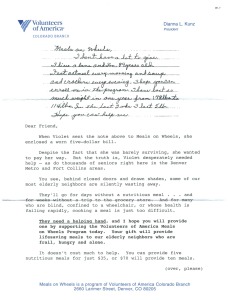 Volunteers
of America
COLORADO BRANCH
Dianna L. Kunz
President
Meals on Wheels,
I don't have a lot to give.
I have a bone and I'm 89 years old.
I eat oatmeal every morning and soup
and crackers every evening. I hope you can
enroll me in the program. I have lost so
much weight in one year from
114 lbs. In the last I also I lost
Hope you can help me
Dear Friend,
When Violet sent the note above to Meals on Wheels, she
enclosed a warn five-dollar bill.
Despite the fact she was barely surviving, she wanted
to pay her way. But the truth is, Violet desperately needed
help - as do thousands of seniors right here in the Denver
Metro and Fort Collins areas.
You see, behind closed doors and drawn shades, some of our
most elderly neighbors are silently wasting away.
They'll go for days without a nutritious meal . . . and
for weeks without a trip to the grocery store. And for many
who are blind, confined to a wheelchair, or whose health is
failing rapidly, cooking a meal is just too difficult.
They need a helping hand, and I hope you will provide
one by supporting the Volunteers of America Meals
on Wheels Program today. Your gift will provide
lifesaving meals to our elderly neighbors who are
frail, hungry and alone.
It doesn't cost much to help. You can provide five
nutritious meals for just $35, or $70 will provide ten meals.
(over, please)
Meals on Wheels is a program of Volunteers of America Colorado Branch
2660 Larimer Street, Denver, CO 80205